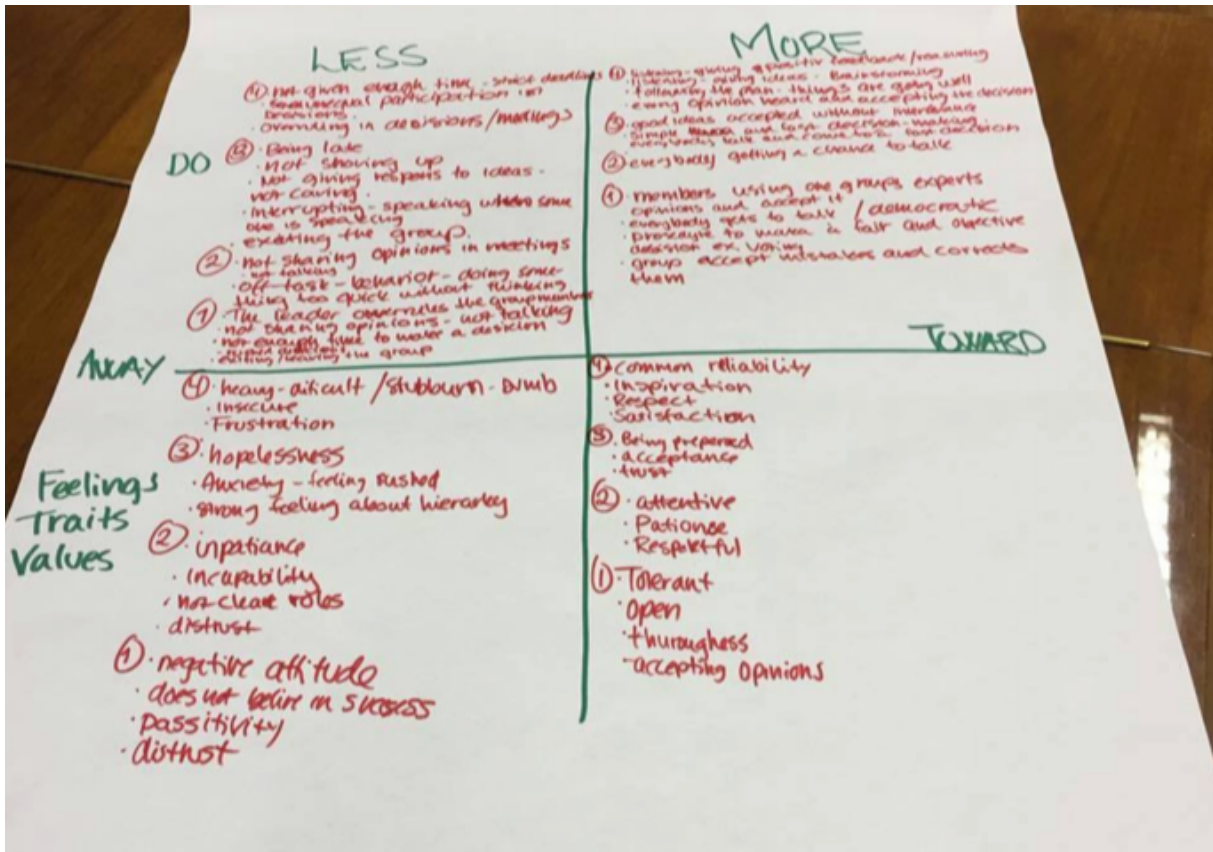 LESS
MORE
④ not given enough time - strict deadlines
unequal participation in
· overruling in decisions/meetings
DO
③ · Being late
· Not showing up
· Not giving respons to ideas -
not caring
· interrupting - speaking some
one is speaking
· exiting the group.
② · not sharing opinions in meetings
- not talking
· off-task - behavior - doing some-
thing too quick without thinking
① · The leader overrules the groupmembers
· not sharing opinions - not talking
· not enough time to make a desicion
· exiting/leaving the group
④ listening - giving positiv feedback/
· listening - giving ideas - Brainstorming
· following the plan - things are going well
· every opinion heard and accepting the decision
③ · good ideas accepted without
· simple and fast decision-making.
everybody talk and come to a fast decision
② · everybody getting a chance to talk
① · members using one groups experts
opinions and accept it
· everybody gets to talk / democratic
to make a fair and objective
decision ex. voting
· group accept mistakes and corrects
them
AWAY
TOWARD
④ · heavy - dificult / stubbourn - Dumb
· insecure
· Frustration
③ · hopelessness
· Anxiety - feeling rushed
· strong feeling about hierarky
Feelings
Traits
Values
② · inpatiance
· incapability
· not clear roles
· distrust
① · negative attitude
· does not belive in success
· passitivity
· distrust
④ · Common reliability
· Inspiration
· Respect
· Satisfaction
③ · Being prepared
· acceptance
· trust
② · attentive
· Patience
· Respektful
① · Tolerant
· open
· thuroughess
- accepting opinions